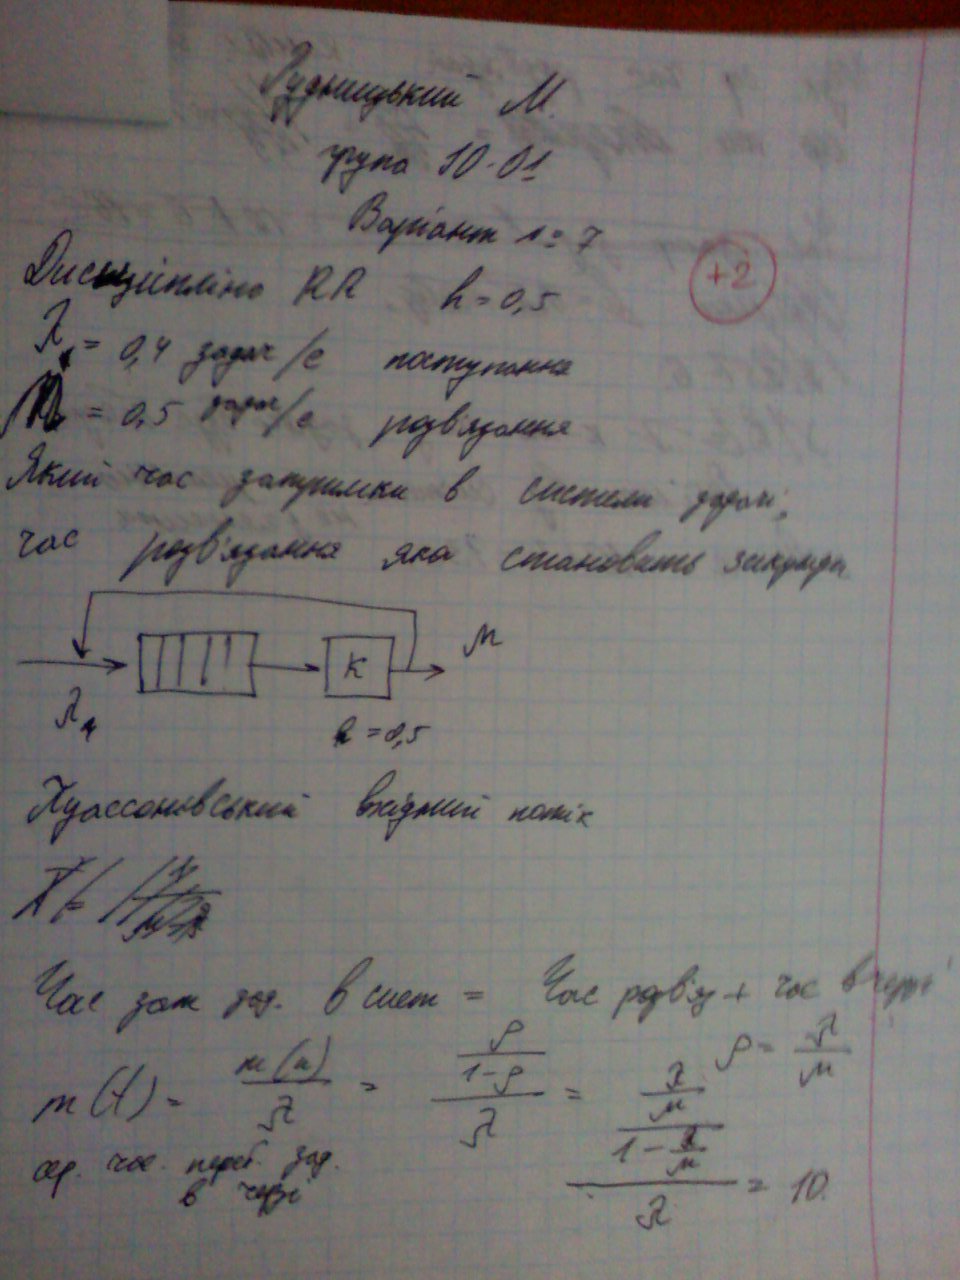 Рудницький М.
група IO-01
Варіант № 7
+2
Дисципліна RR h = 0,5
λ = 0,4 задач/с поступання
μ = 0,5 задач/с розв'язання
Який час затримки в системі задачі,
час розв'язання яка становить секунди
μ
K
λ
h = 0,5
Пуассонівський вхідний потік
Час зат зад. в сист = Час розв'яз + час в черзі
m(t) = m(n)/λ = (ρ/(1-ρ))/λ = ((λ/μ)/(1-λ/μ))/λ = 10.
ρ = λ/μ
сер. час. переб. зад.
в черзі